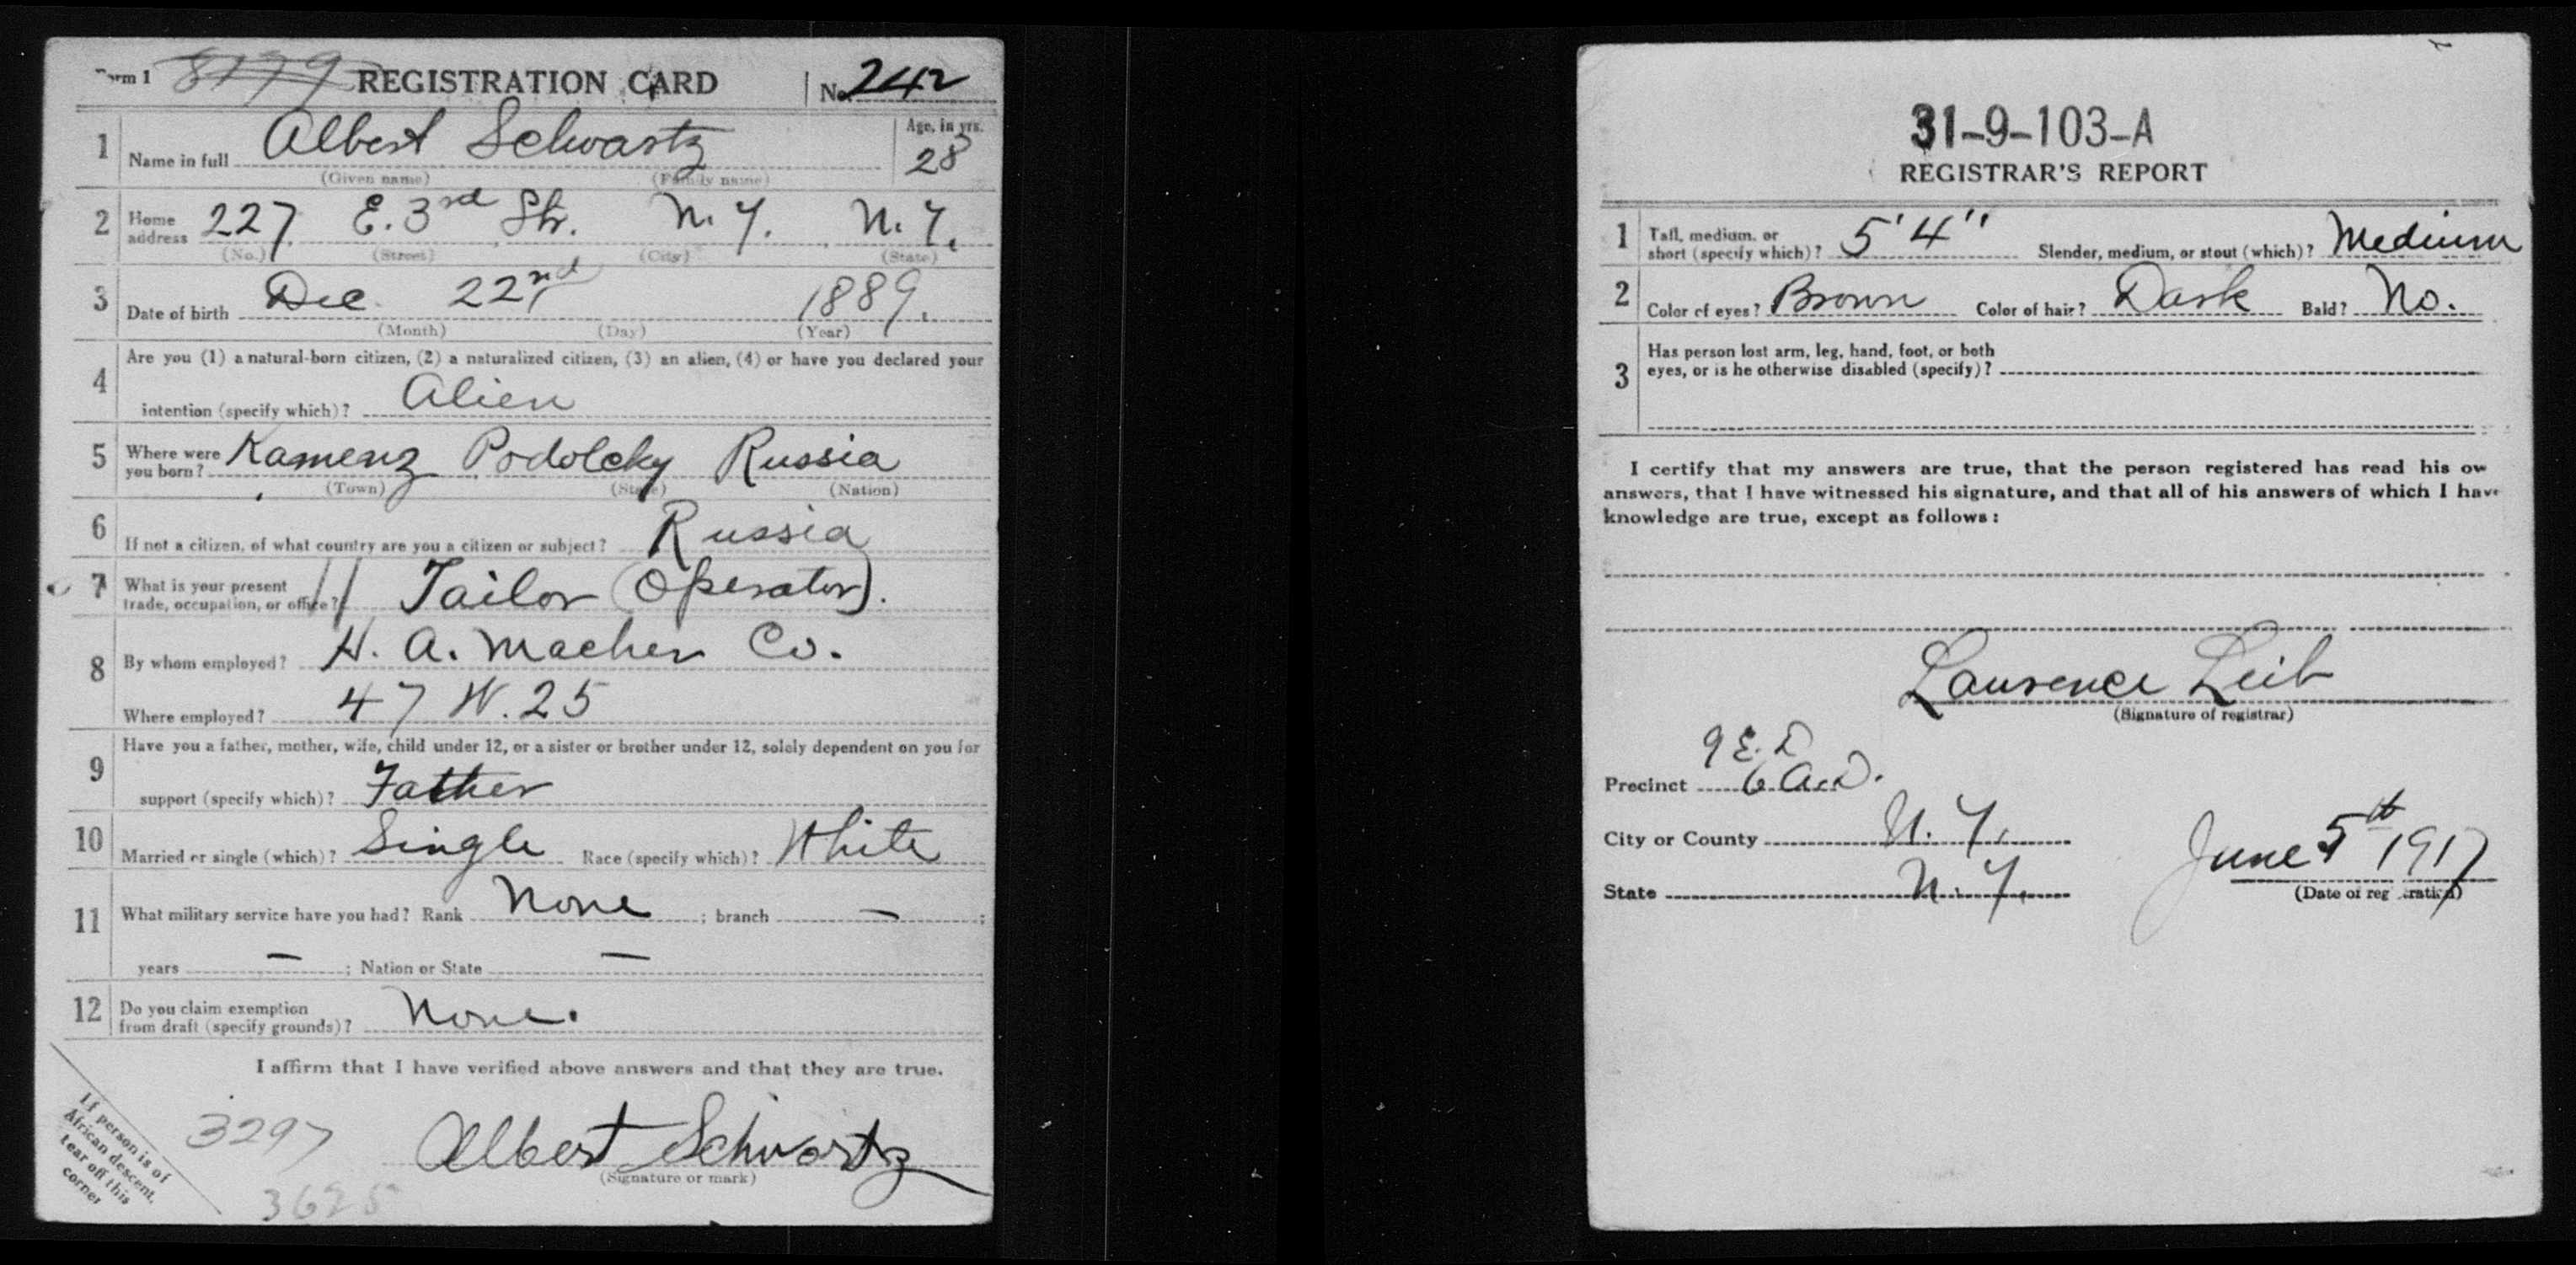 Form 1 8179 REGISTRATION CARD No. 242
1 Name in full Albert Schwartz Age, in yrs. 28
(Given name) (Family name)
2 Home address 227 E. 3rd Str. N. Y. N. Y.
(No.) (Street) (City) (State)
3 Date of birth Dec. 22nd 1889.
(Month) (Day) (Year)
4 Are you (1) a natural-born citizen, (2) a naturalized citizen, (3) an alien, (4) or have you declared your
intention (specify which)? Alien
5 Where were you born? Kamenz Podolsky Russia
(Town) (State) (Nation)
6 If not a citizen, of what country are you a citizen or subject? Russia
7 What is your present trade, occupation, or office? 11 Tailor (Operator).
8 By whom employed? H. A. Macher Co.
Where employed? 47 W. 25
9 Have you a father, mother, wife, child under 12, or a sister or brother under 12, solely dependent on you for
support (specify which)? Father
10 Married or single (which)? Single Race (specify which)? White
11 What military service have you had? Rank None ; branch — ;
years — ; Nation or State —
12 Do you claim exemption from draft (specify grounds)? None.
I affirm that I have verified above answers and that they are true.
If person is of
African descent,
tear off this
corner
3297
Albert Schwartz
(Signature or mark)
3625
31-9-103-A
REGISTRAR'S REPORT
1 Tall, medium, or short (specify which)? 5'4" Slender, medium, or stout (which)? Medium
2 Color of eyes? Brown Color of hair? Dark Bald? No.
3 Has person lost arm, leg, hand, foot, or both
eyes, or is he otherwise disabled (specify)?
I certify that my answers are true, that the person registered has read his ow
answers, that I have witnessed his signature, and that all of his answers of which I have
knowledge are true, except as follows:
Laurence Leib
(Signature of registrar)
9 E. D
Precinct 6 A.D.
City or County N. Y.
State N. Y.
June 5th 1917
(Date of registration)